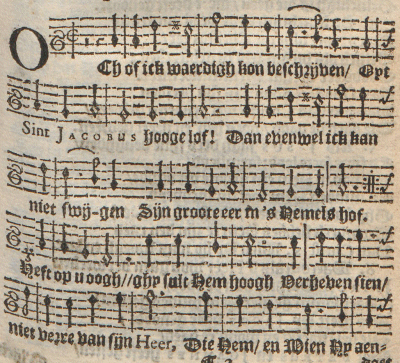 OCh of ick waerdigh kon beschrijven/ Opt
Sint JACOBUS hooge lof! Dan evenwel ick kan
niet swij-gen Sijn groote eer in 's Hemels hof.
Heft op u oogh//ghy sult Hem hoogh Verheven sien/
niet verre van sijn Heer, Die Hem/ en Wien Hy aen-